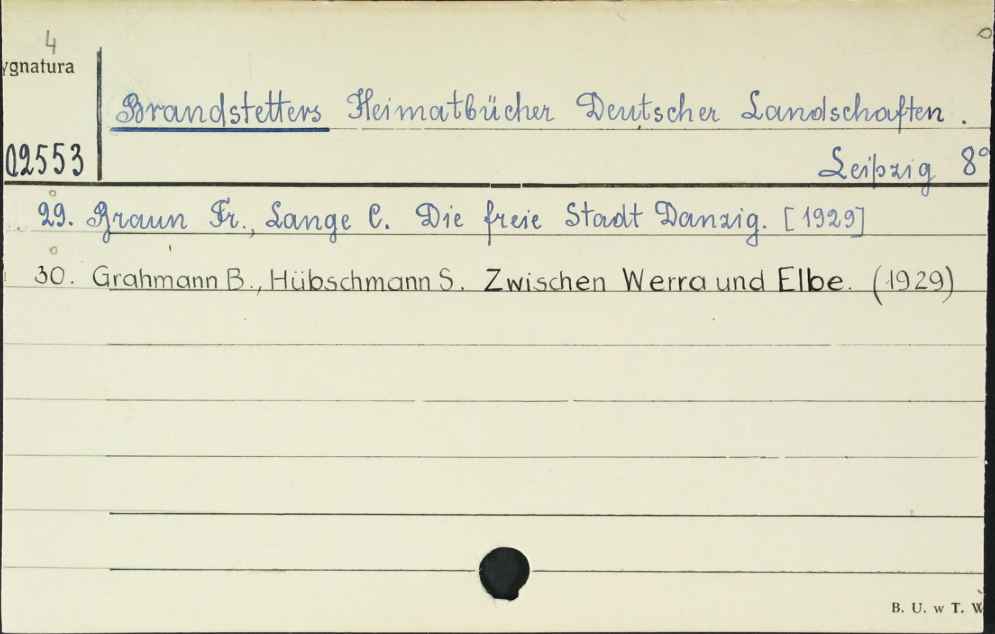 4
ygnatura
Brandstetters Heimatbücher Deutscher Landschaften.
02553
Leipzig 8°
29. Braun Fr., Lange C. Die freie Stadt Danzig. [1929]
30. Grahmann B., Hübschmann S. Zwischen Werra und Elbe. (1929)
B. U. w T. W